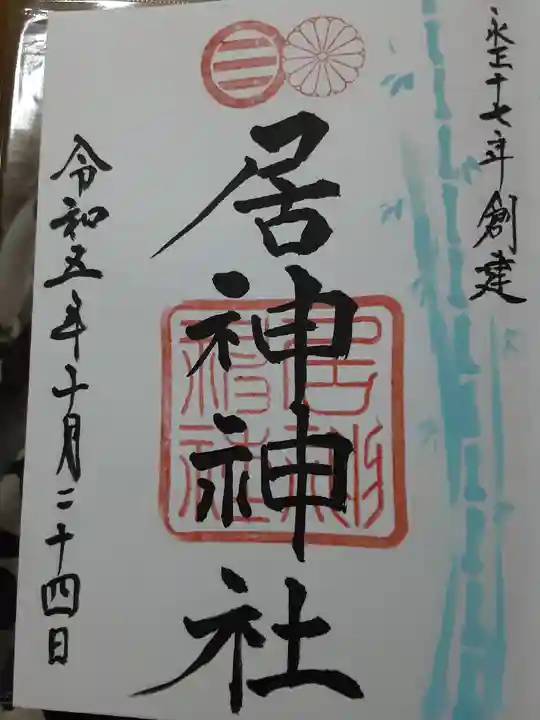 永正十七年創建
居神神社
居神神社
令和五年十月二十四日